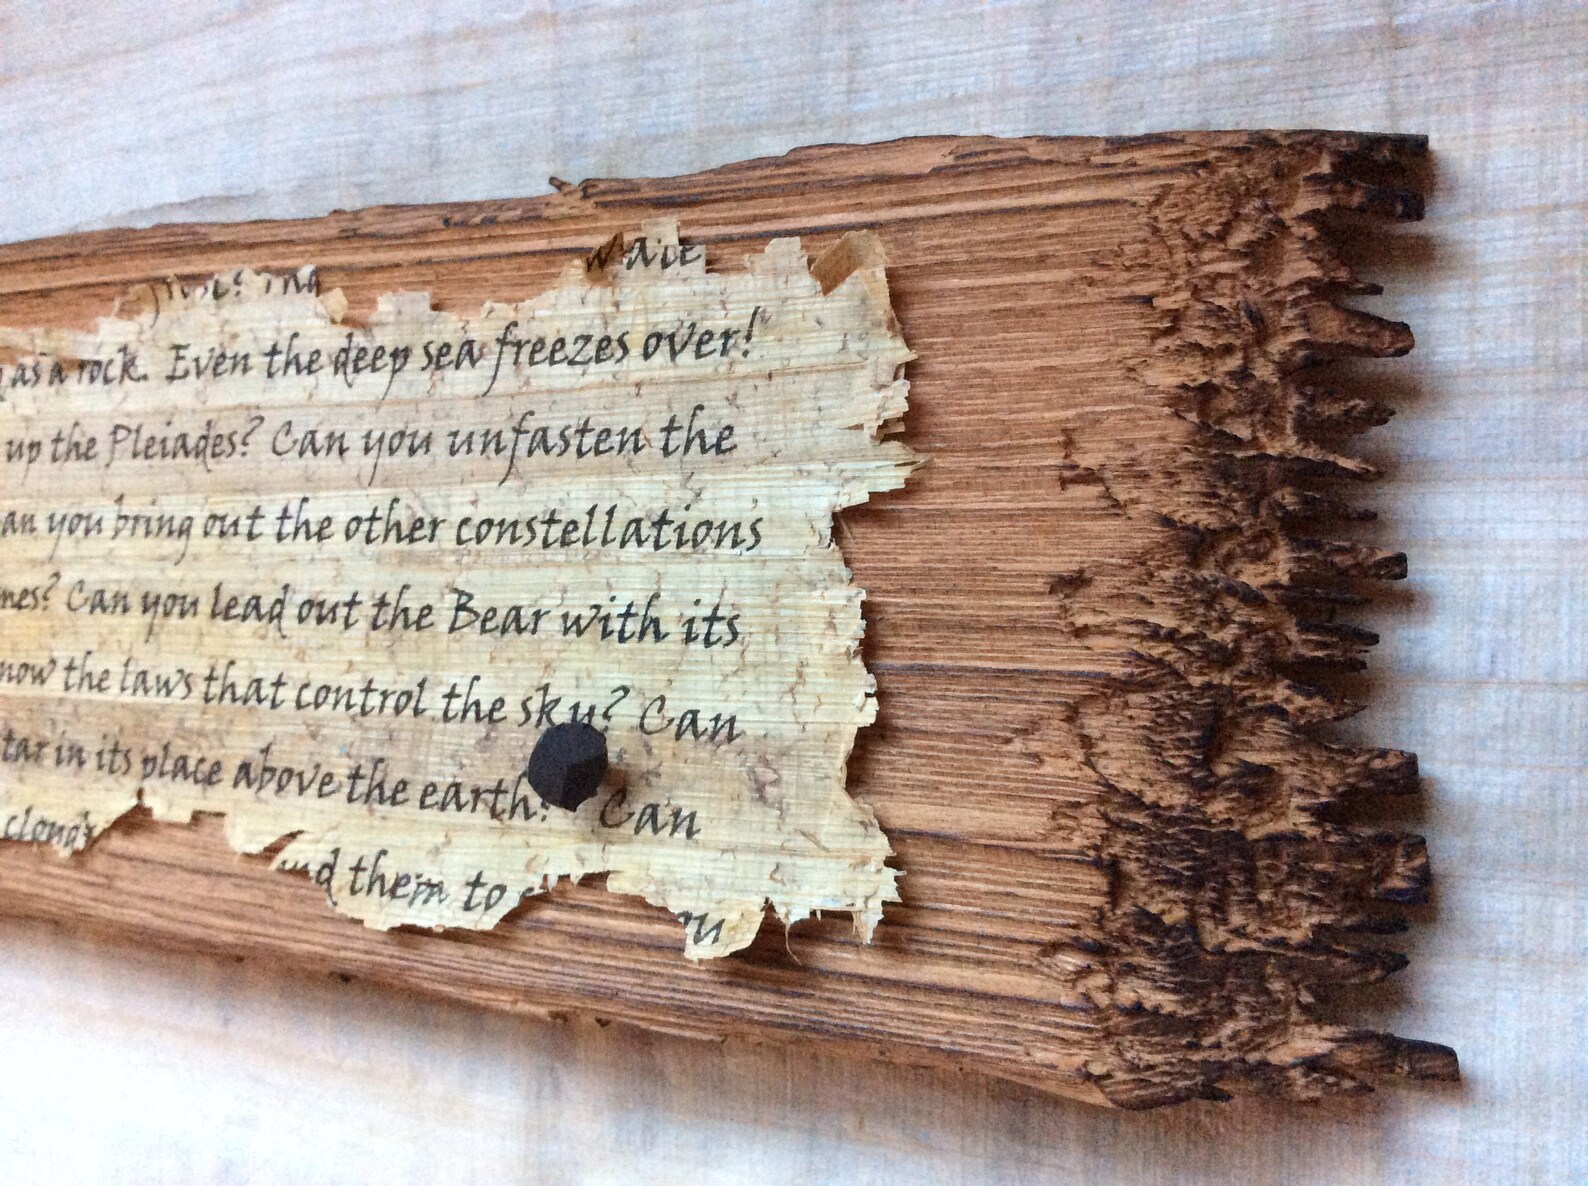 as a rock. Even the deep sea freezes over!
up the Pleiades? Can you unfasten the
an you bring out the other constellations
mes? Can you lead out the Bear with its
now the laws that control the sky? Can
tar in its place above the earth? Can
clouds
them to